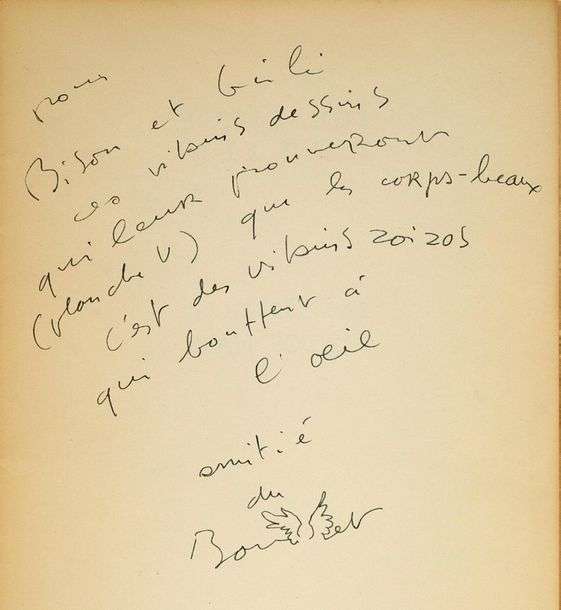 pour
Bison et Gili
ces vilains dessins
qui leur prouveront
(planche V) que les corps-beaux
c'est des vilains zoizos
qui bouffent à
l'oeil
amitié
du